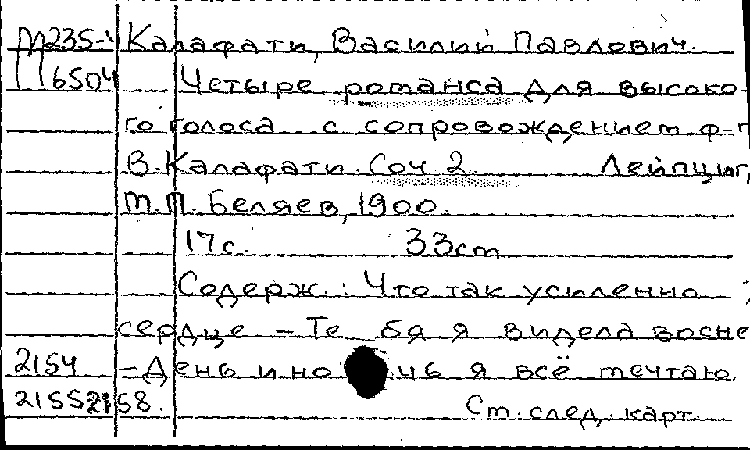 М235-4 Калафати, Василий Павлович.
6504 Четыре романса для высоко-
го голоса с сопровождением ф-п
В. Калафати. Соч 2. Лейпциг,
М.П. Беляев, 1900.
17с. 33cm
Содерж.: Что так усиленно
сердце - Те бя я видела восне
2154 - День и но чь я всё мечтаю.
2155 2158. См. след. карт.